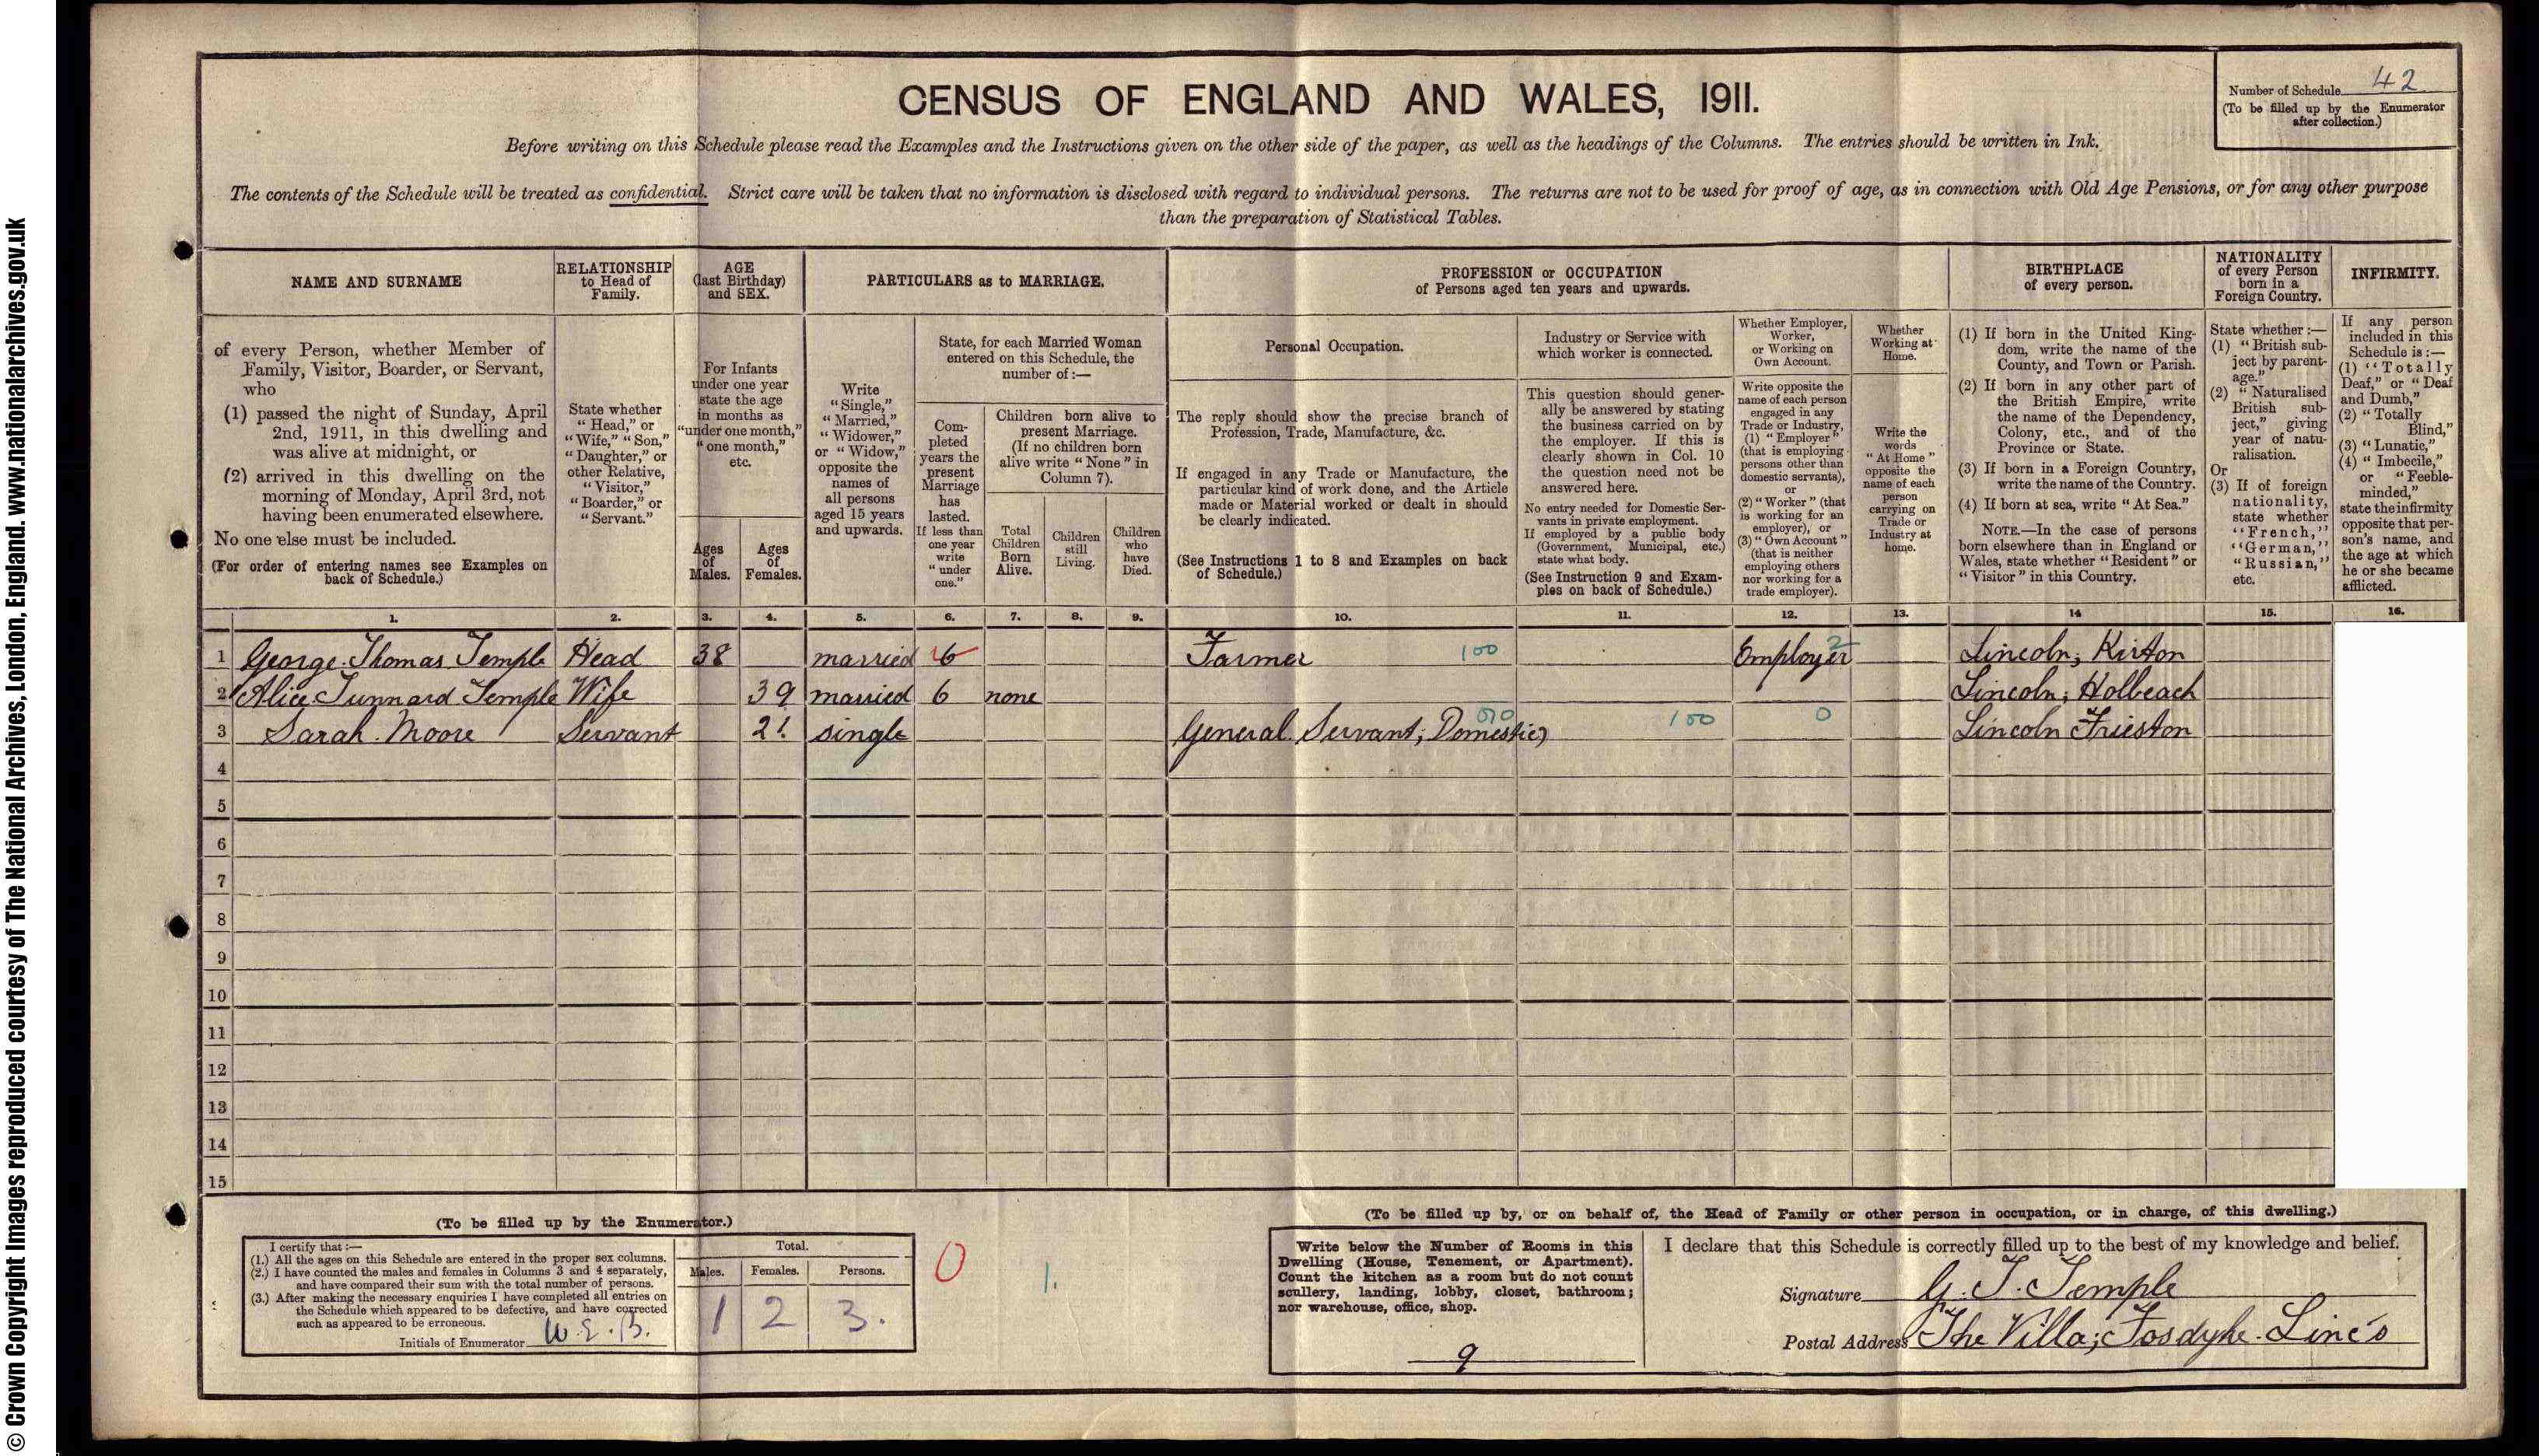 © Crown Copyright Images reproduced courtesy of The National Archives, London, England. www.nationalarchives.gov.uk
CENSUS OF ENGLAND AND WALES, 1911.
Number of Schedule 42
(To be filled up by the Enumerator
after collection.)
Before writing on this Schedule please read the Examples and the Instructions given on the other side of the paper, as well as the headings of the Columns. The entries should be written in Ink.
The contents of the Schedule will be treated as confidential. Strict care will be taken that no information is disclosed with regard to individual persons. The returns are not to be used for proof of age, as in connection with Old Age Pensions, or for any other purpose
than the preparation of Statistical Tables.
NAME AND SURNAME
of every Person, whether Member of
Family, Visitor, Boarder, or Servant,
who
(1) passed the night of Sunday, April
2nd, 1911, in this dwelling and
was alive at midnight, or
(2) arrived in this dwelling on the
morning of Monday, April 3rd, not
having been enumerated elsewhere.
No one else must be included.
(For order of entering names see Examples on
back of Schedule.)
RELATIONSHIP
to Head of
Family.
State whether
"Head," or
"Wife," "Son,"
"Daughter," or
other Relative,
"Visitor,"
"Boarder," or
"Servant."
AGE
(last Birthday)
and SEX.
For Infants
under one year
state the age
in months as
"under one month,"
"one month,"
etc.
Ages
of
Males.
Ages
of
Females.
PARTICULARS as to MARRIAGE.
Write
"Single,"
"Married,"
"Widower,"
or "Widow,"
opposite the
names of
all persons
aged 15 years
and upwards.
State, for each Married Woman
entered on this Schedule, the
number of:—
Com-
pleted
years the
present
Marriage
has
lasted.
If less than
one year
write
"under
one."
Children born alive to
present Marriage.
(If no children born
alive write "None" in
Column 7).
Total
Children
Born
Alive.
Children
still
Living.
Children
who
have
Died.
PROFESSION or OCCUPATION
of Persons aged ten years and upwards.
Personal Occupation.
The reply should show the precise branch of
Profession, Trade, Manufacture, &c.
If engaged in any Trade or Manufacture, the
particular kind of work done, and the Article
made or Material worked or dealt in should
be clearly indicated.
(See Instructions 1 to 8 and Examples on back
of Schedule.)
Industry or Service with
which worker is connected.
This question should gener-
ally be answered by stating
the business carried on by
the employer. If this is
clearly shown in Col. 10
the question need not be
answered here.
No entry needed for Domestic Ser-
vants in private employment.
If employed by a public body
(Government, Municipal, etc.)
state what body.
(See Instruction 9 and Exam-
ples on back of Schedule.)
Whether Employer,
Worker,
or Working on
Own Account.
Write opposite the
name of each person
engaged in any
Trade or Industry,
(1) "Employer"
(that is employing
persons other than
domestic servants),
or
(2) "Worker" (that
is working for an
employer), or
(3) "Own Account"
(that is neither
employing others
nor working for a
trade employer).
Whether
Working at
Home.
Write the
words
"At Home"
opposite the
name of each
person
carrying on
Trade or
Industry at
home.
BIRTHPLACE
of every person.
(1) If born in the United King-
dom, write the name of the
County, and Town or Parish.
(2) If born in any other part of
the British Empire, write
the name of the Dependency,
Colony, etc., and of the
Province or State.
(3) If born in a Foreign Country,
write the name of the Country.
(4) If born at sea, write "At Sea."
NOTE.—In the case of persons
born elsewhere than in England or
Wales, state whether "Resident" or
"Visitor" in this Country.
NATIONALITY
of every Person
born in a
Foreign Country.
State whether:—
(1) "British sub-
ject by parent-
age."
(2) "Naturalised
British sub-
ject," giving
year of natu-
ralisation.
Or
(3) If of foreign
nationality,
state whether
"French,"
"German,"
"Russian,"
etc.
INFIRMITY.
If any person
included in this
Schedule is:—
(1) "Totally
Deaf," or "Deaf
and Dumb,"
(2) "Totally
Blind,"
(3) "Lunatic,"
(4) "Imbecile,"
or "Feeble-
minded,"
state the infirmity
opposite that per-
son's name, and
the age at which
he or she became
afflicted.
1. 2. 3. 4. 5. 6. 7. 8. 9. 10. 11. 12. 13. 14 15. 16.
1 George Thomas Temple Head 38 married 6 Farmer 100 Employer 2 Lincoln; Kirton
2 Alice Tunnard Temple Wife 39 married 6 none Lincoln; Holbeach
3 Sarah Moore Servant 21 single General Servant; Domestic) 100 0 Lincoln Frieston
4
5
6
7
8
9
10
11
12
13
14
15
(To be filled up by the Enumerator.)
I certify that:—
(1.) All the ages on this Schedule are entered in the proper sex columns.
(2.) I have counted the males and females in Columns 3 and 4 separately,
and have compared their sum with the total number of persons.
(3.) After making the necessary enquiries I have completed all entries on
the Schedule which appeared to be defective, and have corrected
such as appeared to be erroneous.
Initials of Enumerator W.E.B.
Total.
Males. Females. Persons.
1 2 3.
0
1.
(To be filled up by, or on behalf of, the Head of Family or other person in occupation, or in charge, of this dwelling.)
Write below the Number of Rooms in this
Dwelling (House, Tenement, or Apartment).
Count the kitchen as a room but do not count
scullery, landing, lobby, closet, bathroom;
nor warehouse, office, shop.
9
I declare that this Schedule is correctly filled up to the best of my knowledge and belief.
Signature G. T. Temple
Postal Address The Villa; Fosdyke. Linc's